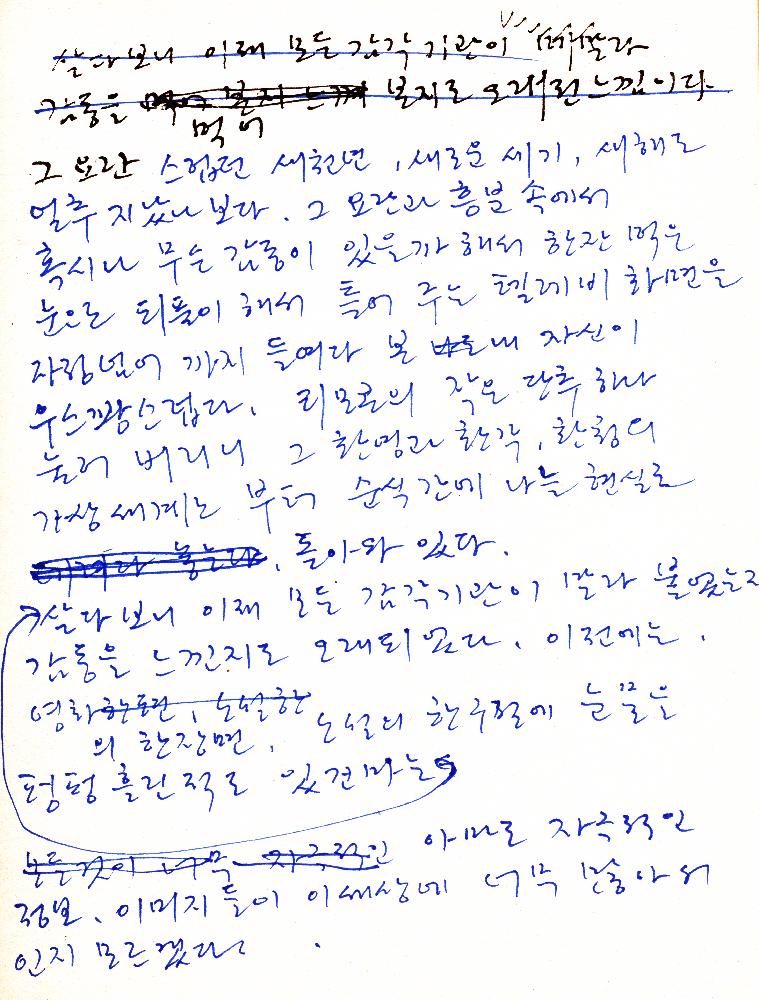 살다보니 이제 모든 감각기관이 말라
감동을 먹어 본지도 오래된 느낌이다.
그 요란 스럽던 새천년, 새로운 세기, 새해도
얼추 지났나 보다. 그 요란과 흥분 속에서
혹시나 무슨 감동이 있을까 해서 한잔 먹은
눈으로 되풀이 해서 틀어 주는 텔레비 화면을
자정넘어 까지 들여다 본 내 자신이
우스꽝스럽다. 리모콘의 작은 단추 하나
눌러 버리니 그 환영과 환각, 환청의
가상세계는 부터 순식간에 나는 현실로
돌아와 있다.
살다보니 이제 모든 감각기관이 말라 붙었는지
감동을 느낀지도 오래되었다. 이전에는,
영화한토막, 소설한
의 한장면, 소설의 한구절에 눈물을
펑펑 흘린적도 있건마는
모든것이 너무 자극적인 아마도 자극적인
정보, 이미지들이 이세상에 너무 많아서
인지 모르겠다.